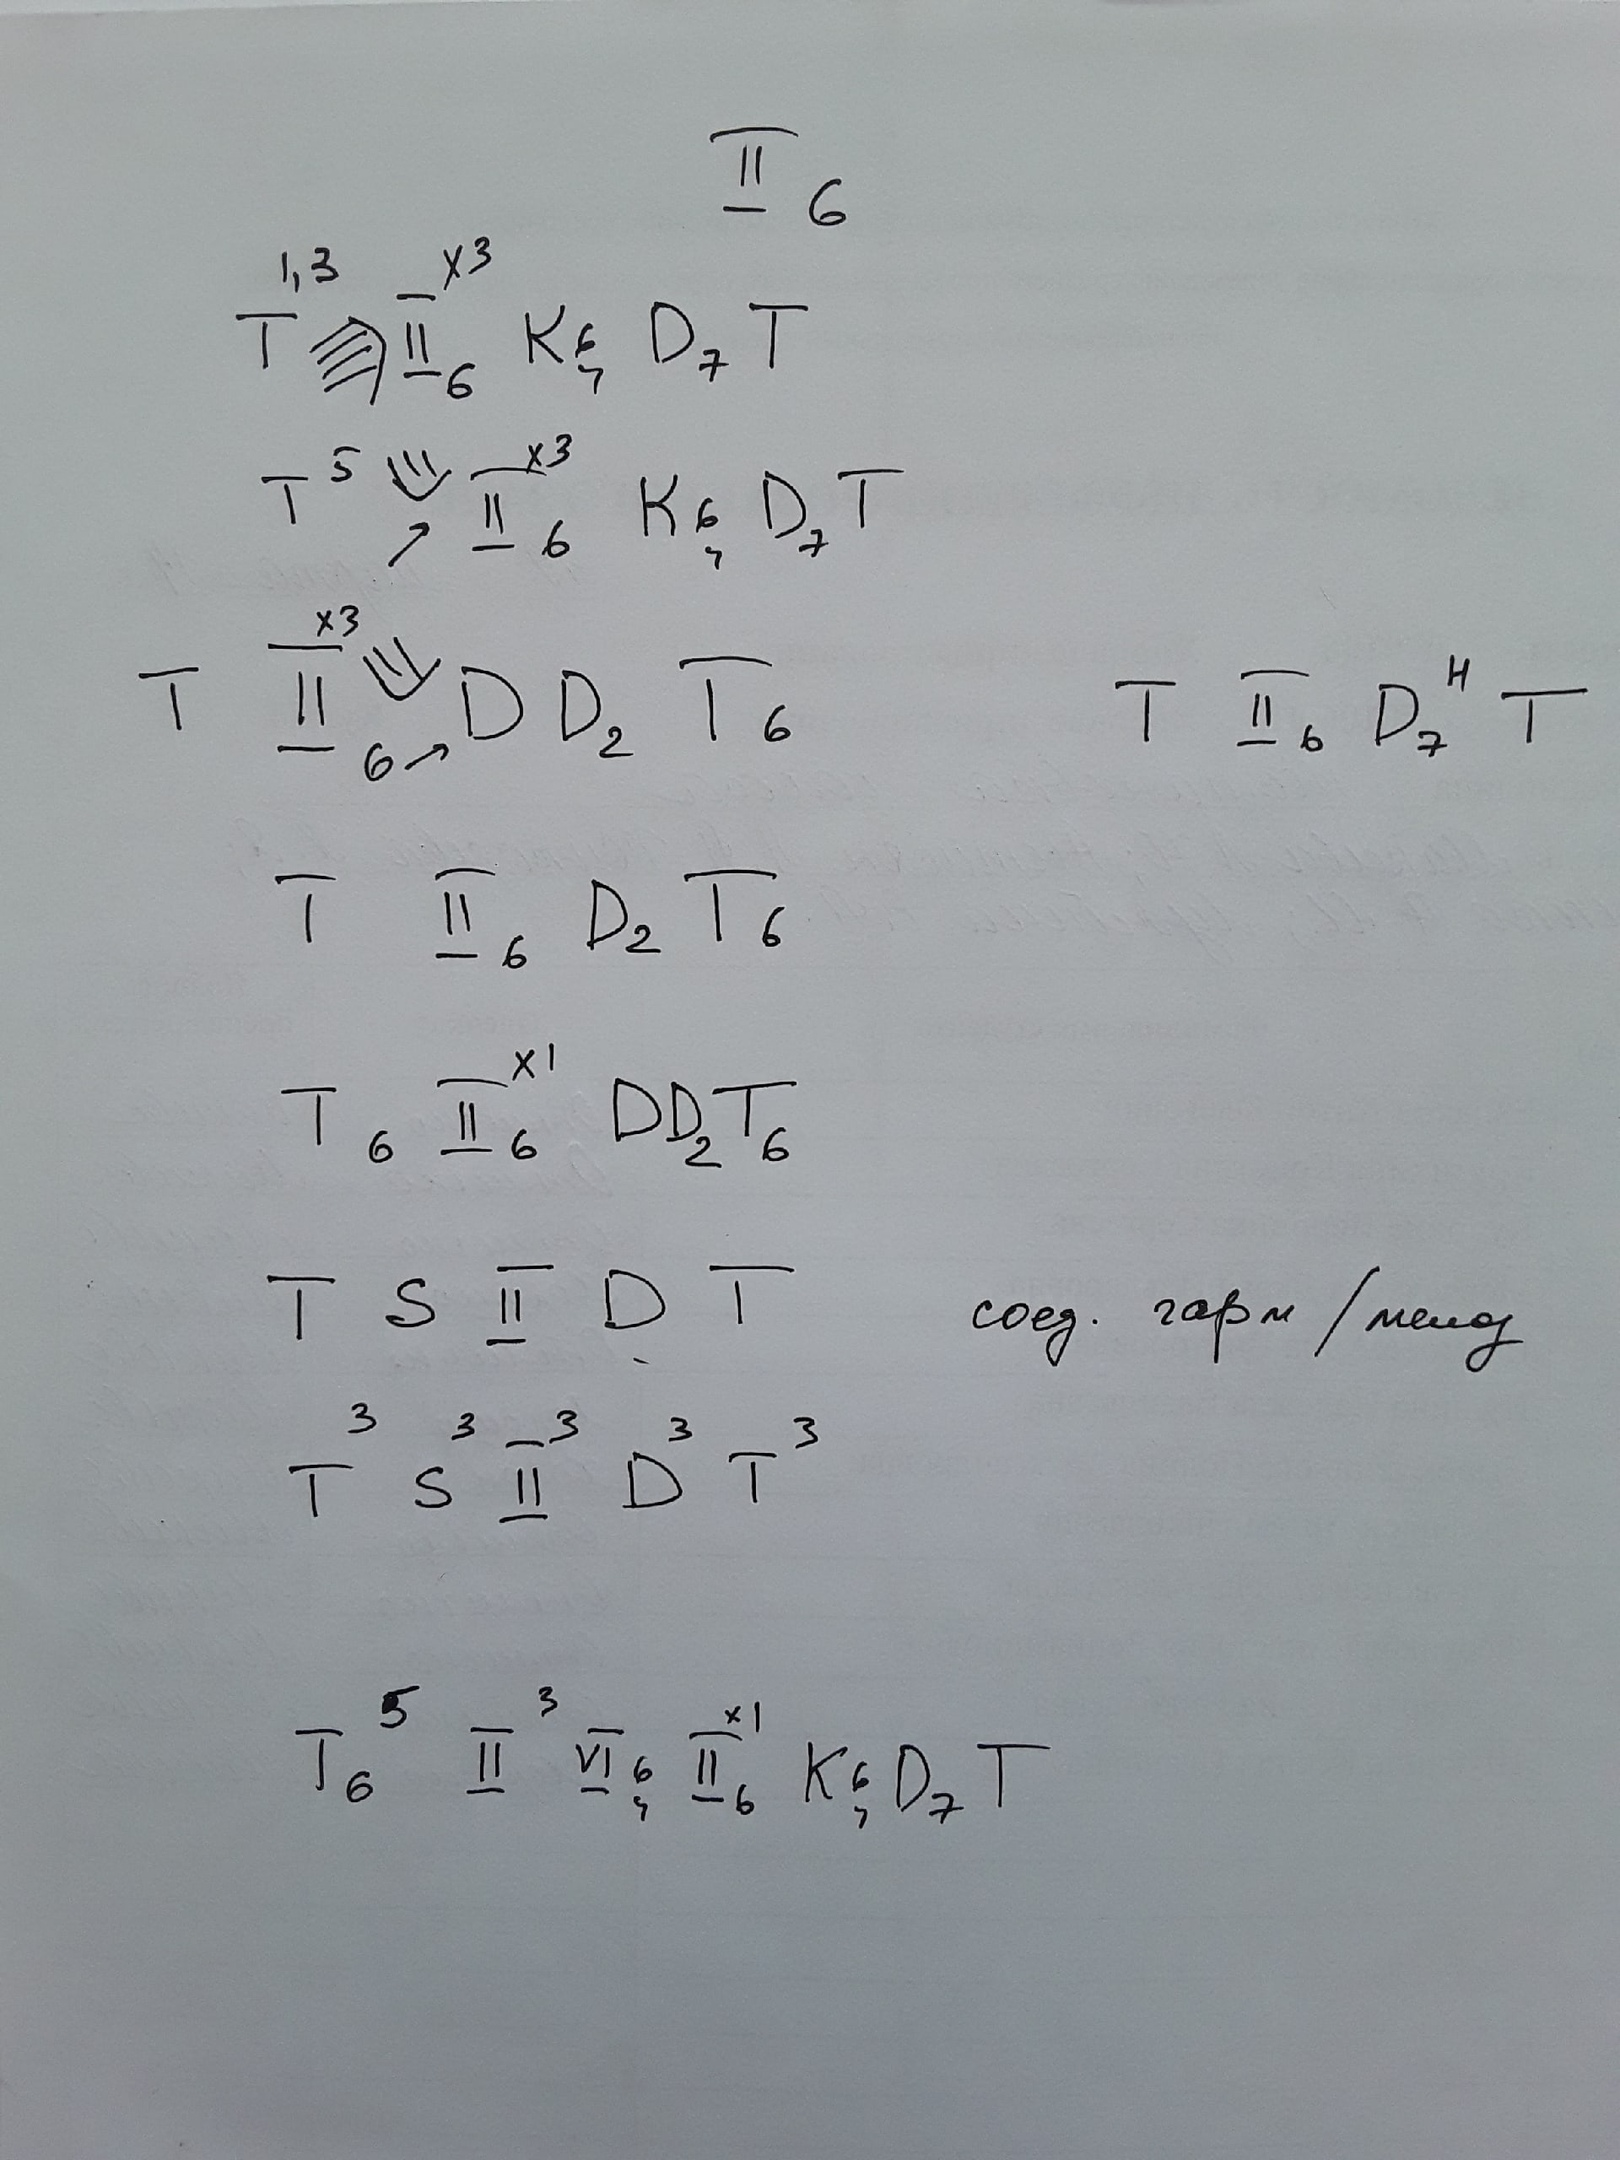 II6
T1,3 II6x3 K64 D7 T
T5 II6x3 K64 D7 T
T II6x3 D D2 T6
T II6 D7н T
T II6 D2 T6
T6 II6x1 D D2 T6
T S II D T соед. гарм/мелод
T3 S3 II3 D3 T3
T65 II3 VI64 II6x1 K64 D7 T